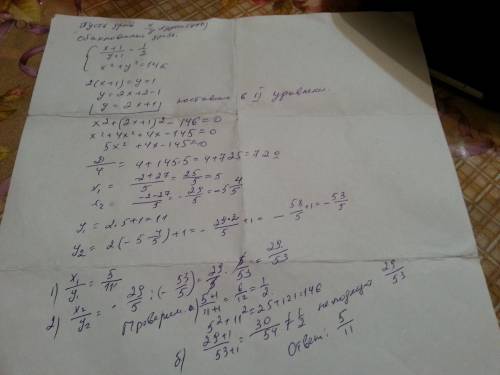 Пусть дробь x/y
обыкновенная дробь.
{ (x+1)/(y+1) = 1/2
x² + y² = 146
2(x+1) = y+1
y = 2x+2-1
y = 2x+1 } подставим в II уравнение.
x2 + (2x+1)2 - 146 = 0
x² + 4x² + 4x - 145 = 0
5x² + 4x - 145 = 0
D/4 = 4 + 145·5 = 4 + 725 = 729
x₁ = (-2+27)/5 = 25/5 = 5
x₂ = (-2-27)/5 = -29/5 = -5 4/5
y₁ = 2·5+1 = 11
y₂ = 2(-5 4/5)+1 = -(29·2)/5 + 1 = -58/5 + 1 = -53/5
1) x₁/y₁ = 5/11
2) x₂/y₂ = -29/5 : (-53/5) = 29/5 · 5/53 = 29/53
Проверяем. а) (5+1)/(11+1) = 6/12 = 1/2
5² + 11² = 25 + 121 = 146
б) (29+1)/(53+1) = 30/54 ≠ 1/2 не подходит 29/53
Ответ: 5/11